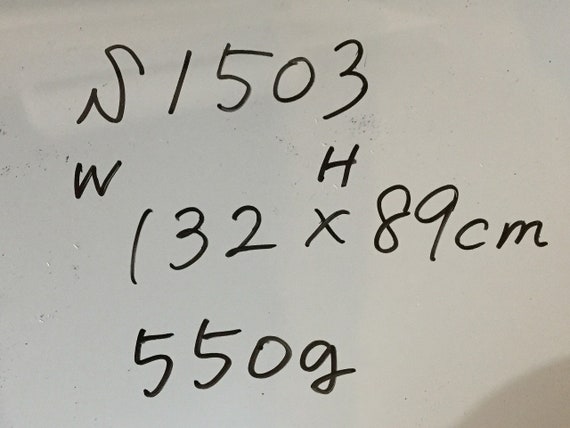 S1503
W H
132 x 89cm
550g